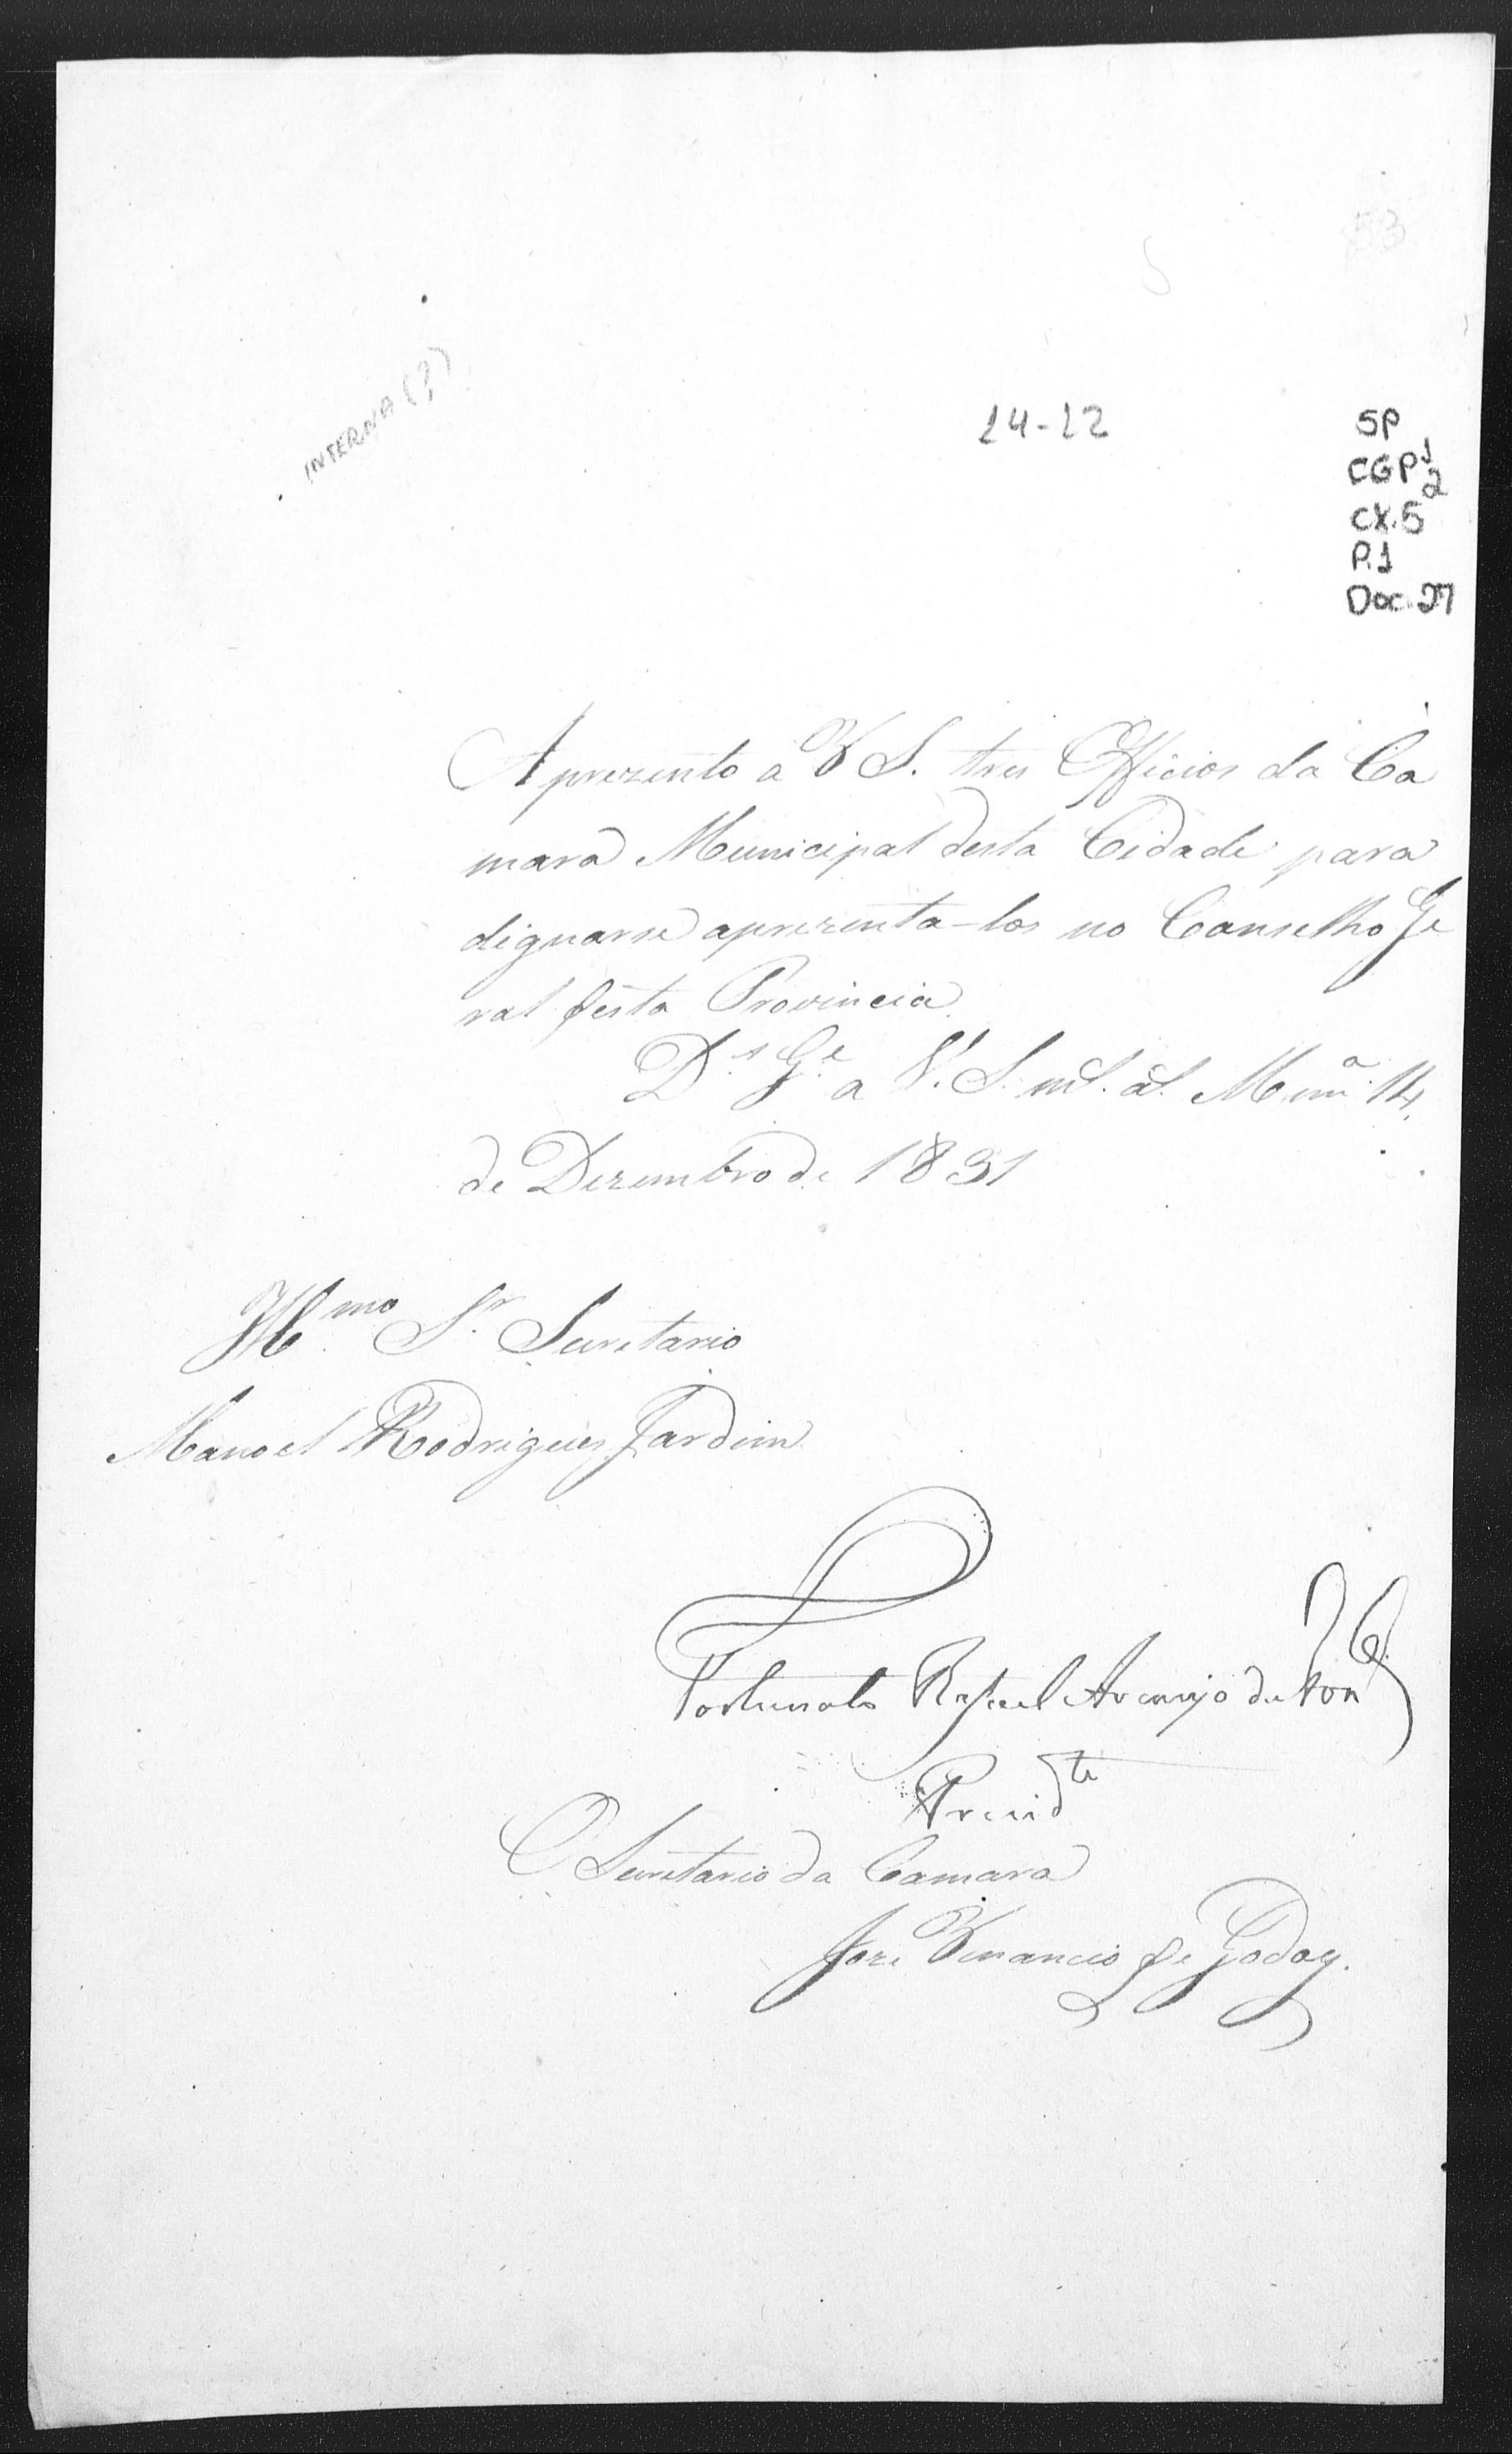 53
INTERNA (?)
14-12
SP
CGP 1
2
CX.5
P.1
Doc. 27
Aprezento a V S. tres Officios da Ca
mara Municipal desta Cidade para
dignarse aprezenta-los no Conselho Ge
ral desta Provincia
D.s G.e a V. S. m.s a.s Mnnª 14
de Dezembro de 1831
Ill.mo S.r Secretario
Manoel Rodrigues Jardim
Fortunato Rafael Araujo da Fonca
Prezid.te
O Secretario da Camara
Joze Venancio de Godoy.